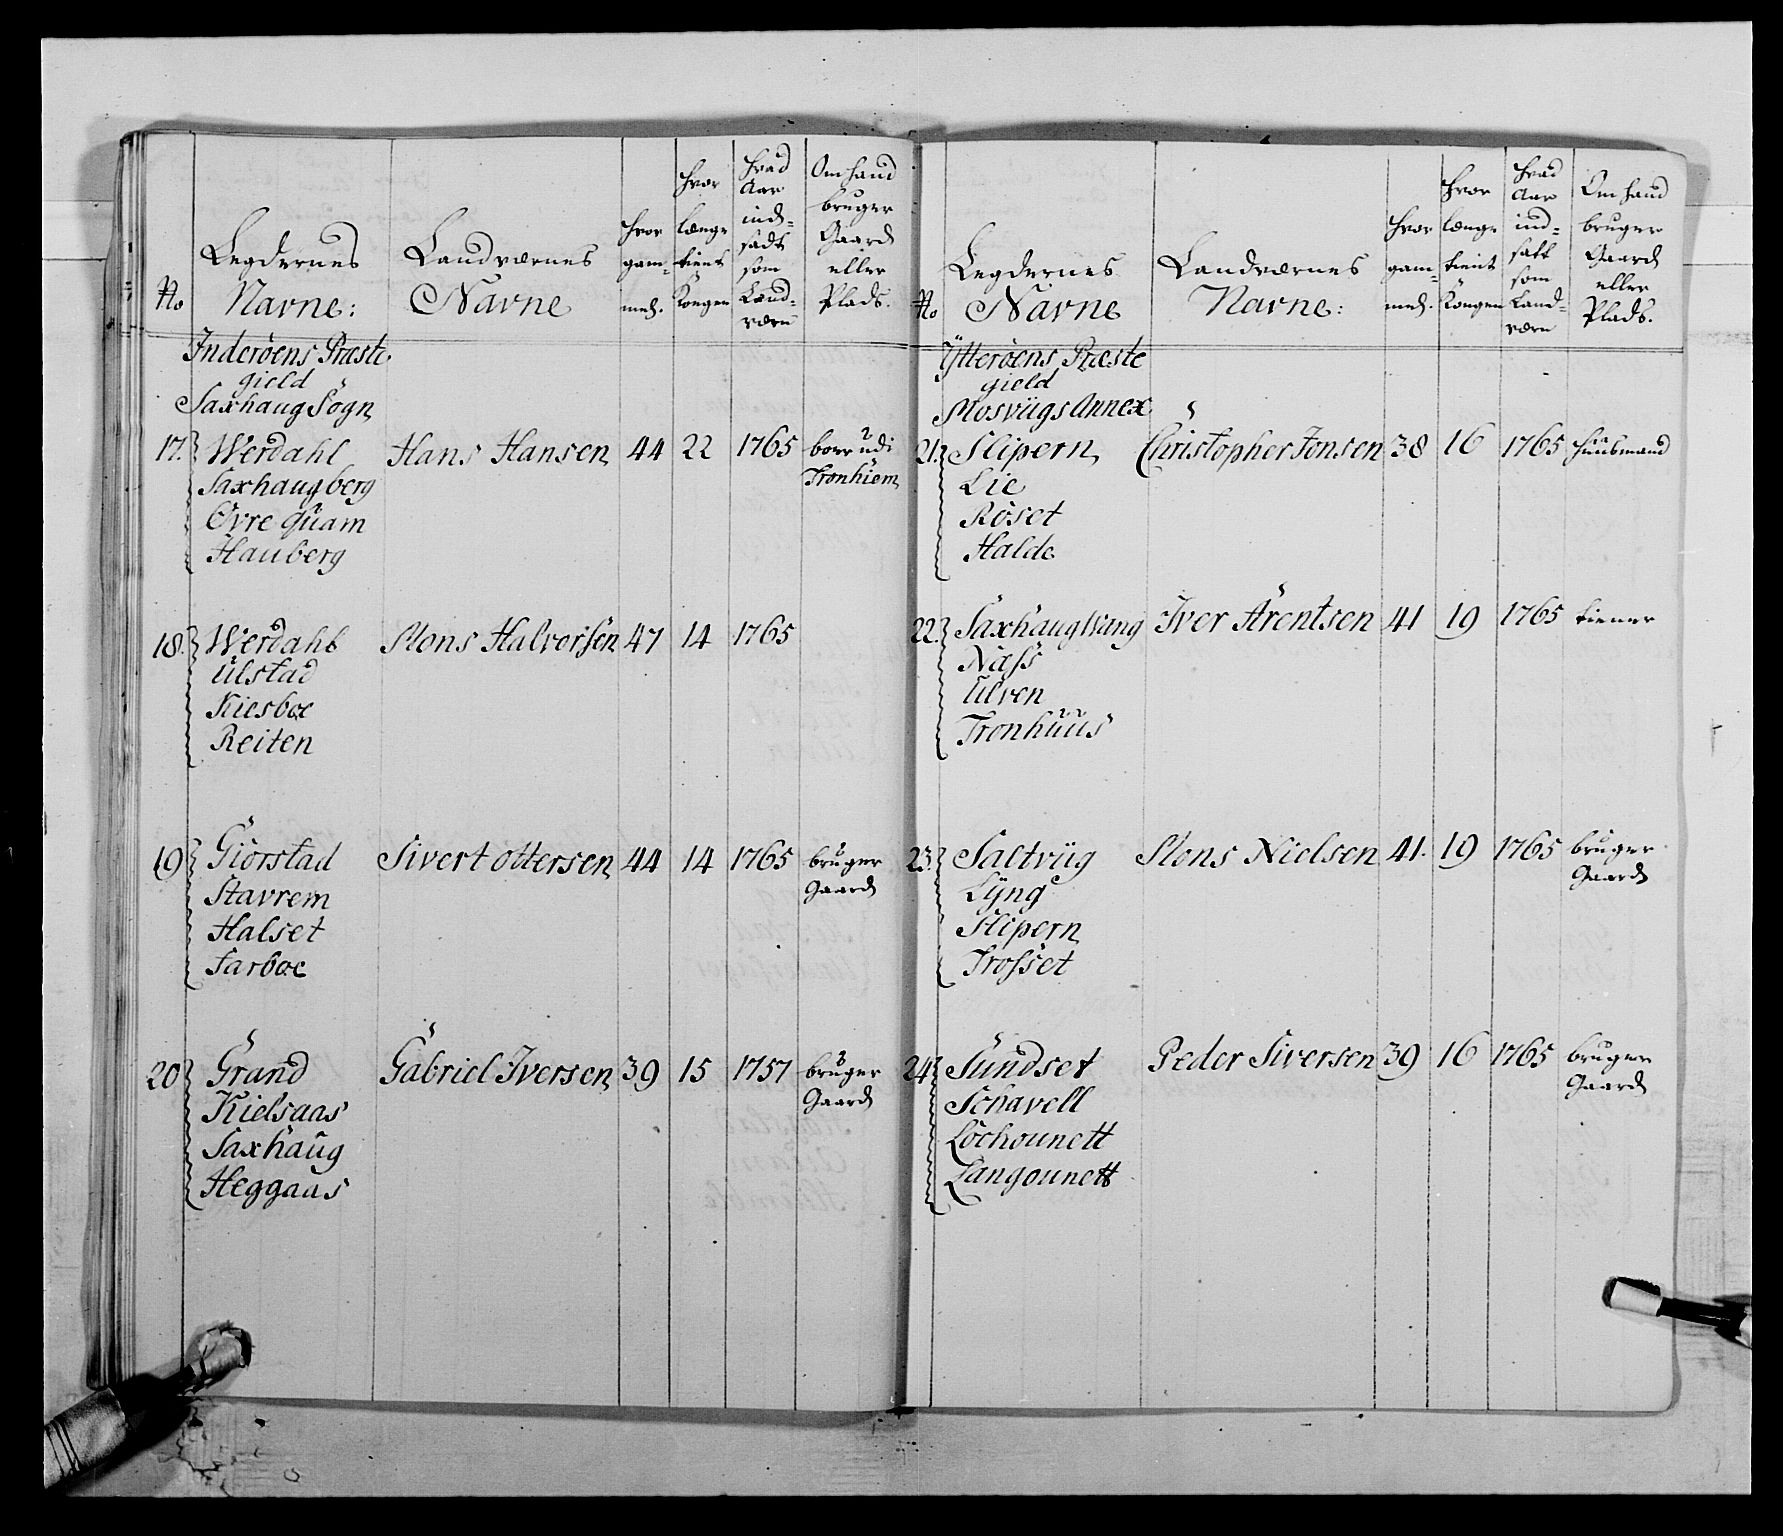 No
Legdernes
Navne:
Landværnes
Navne
hvor
gam-
mel.
hvor
længe
tient
Kongen
hvad
Aar
ind-
sadt
som
Land-
værn
Om hand
bruger
Gaard
eller
Plads.
Inderöens Præste
gield
Saxhaug Sogn
17. Werdahl Hans Hansen 44 22 1765 boer udi
Saxhaugberg Tronhiem
Övre Quam
Hauberg
18. Werdahl Mons Halvorsen 47 14 1765
Ulstad
Kiesboe
Reiten
19 Giörstad Sivert ottersen 44 14 1765 bruger
Stavrem Gaard
Halset
Sarboe
20 Grand Gabriel Iversen 39 15 1757 bruger
Kielsaas Gaard
Saxhaug
Heggaas
No
Legdernes
Navne
Landværnes
Navne:
hvor
gam-
mel.
hvor
længe
tient
Kongen
hvad
Aar
ind-
satt
som
Land-
værn
Om hand
bruger
Gaard
eller
Plads.
Ytteröens Præste
gield
Mosviigs Annex
21. Slipern Christopher Jonsen 38 16 1765 Huusmand
Lie
Röset
Halde
22. Saxhaug Wang Iver Arentsen 41 19 1765 tiener
Næss
Ulven
Tronhuus
23. Saltviig Mons Nielsen 41. 19 1765 bruger
Lyng Gaard
Slipern
Trosset
24 Sundset Peder Siversen 39 16 1765 bruger
Schavell Gaard
Löchounett
Langounett